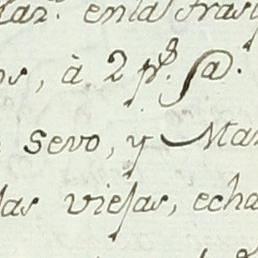 en la fras
, à 2 p.s @.
Sevo, y Man
las viejas, echa